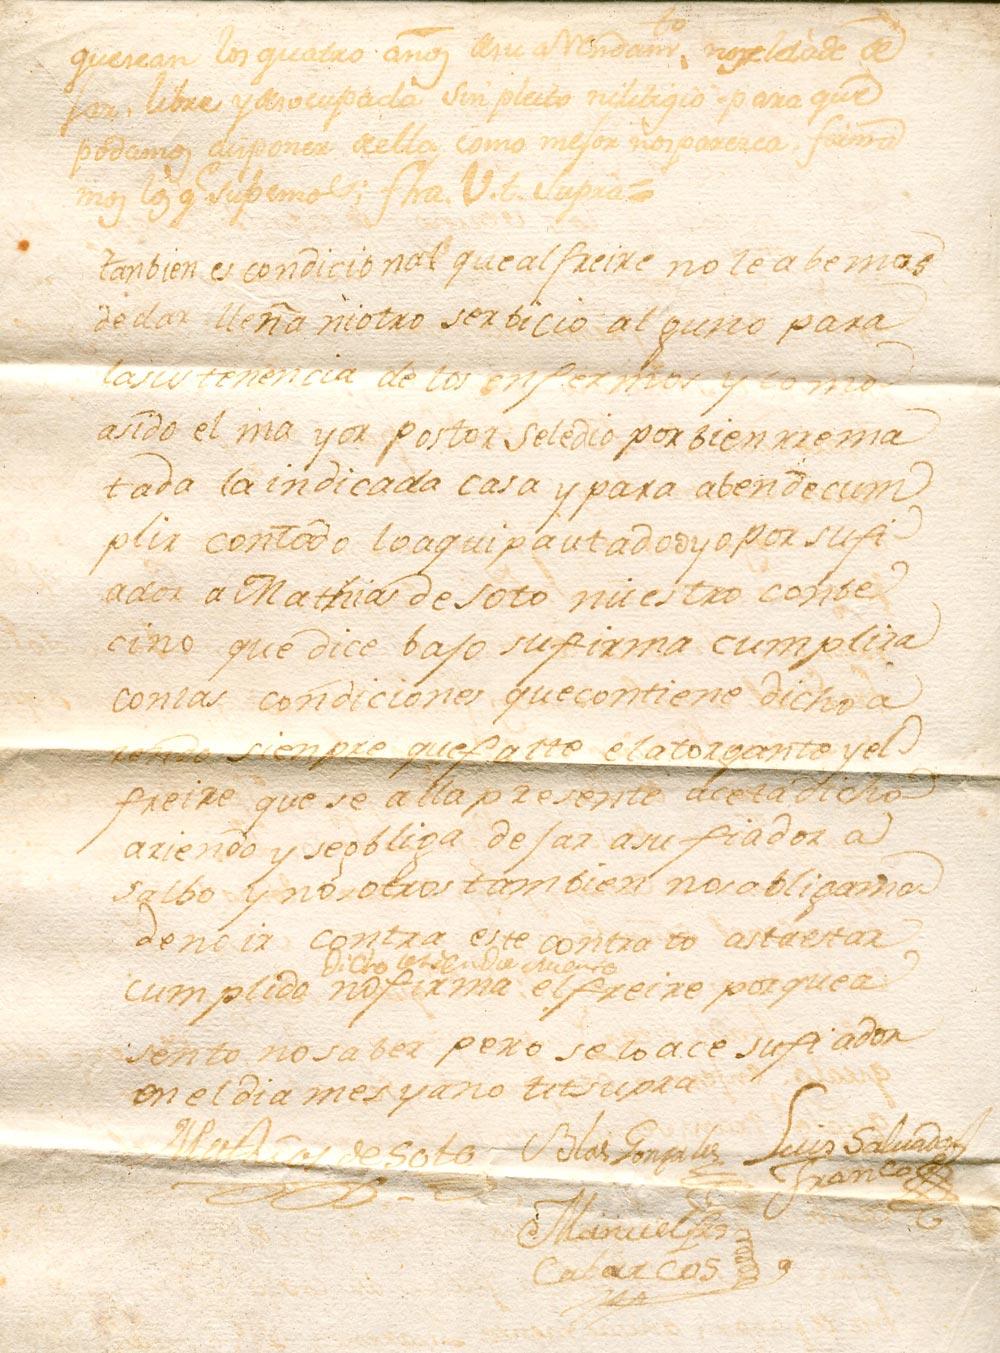 que sean los quatro años de su a Rendam.to nos la ha de de
jar, libre y desocupada sin pleito ni litigio para que
podamos disponer de ella como mejor nos paresca, firma
mos los q.e supemos; fha. Ut. supra=
tanbien es condicional que al freire no le abemos
de dar lleña niotro serbicio alguno para
lasistenencia de los enfermos y como
asido el mayor postor seledio por bien rrema
tada la indicada casa y para abende cum
plir contodo loaqui pautado dyo por su fi
ador a Mathias de soto nuestro conbe
cino que dice bajo su firma cumplira
conlas condiciones que contiene dicho a
riendo sienpre que falte el atorgante y el
freire que se alla presente aceta dicho
ariendo y se obliga dejar a su fiador a
salbo y nosotros tambien nos abligamos
de no ir contra este contrato asta estar
dicho ariendo
cumplido no firma el freire por que a
sento no saber pero se lo ace su fiador
en el dia mes y ano tut supra
Mathias de Soto Blas Gonzales Luis Salvador
Franco
Manuel
Cabarcos